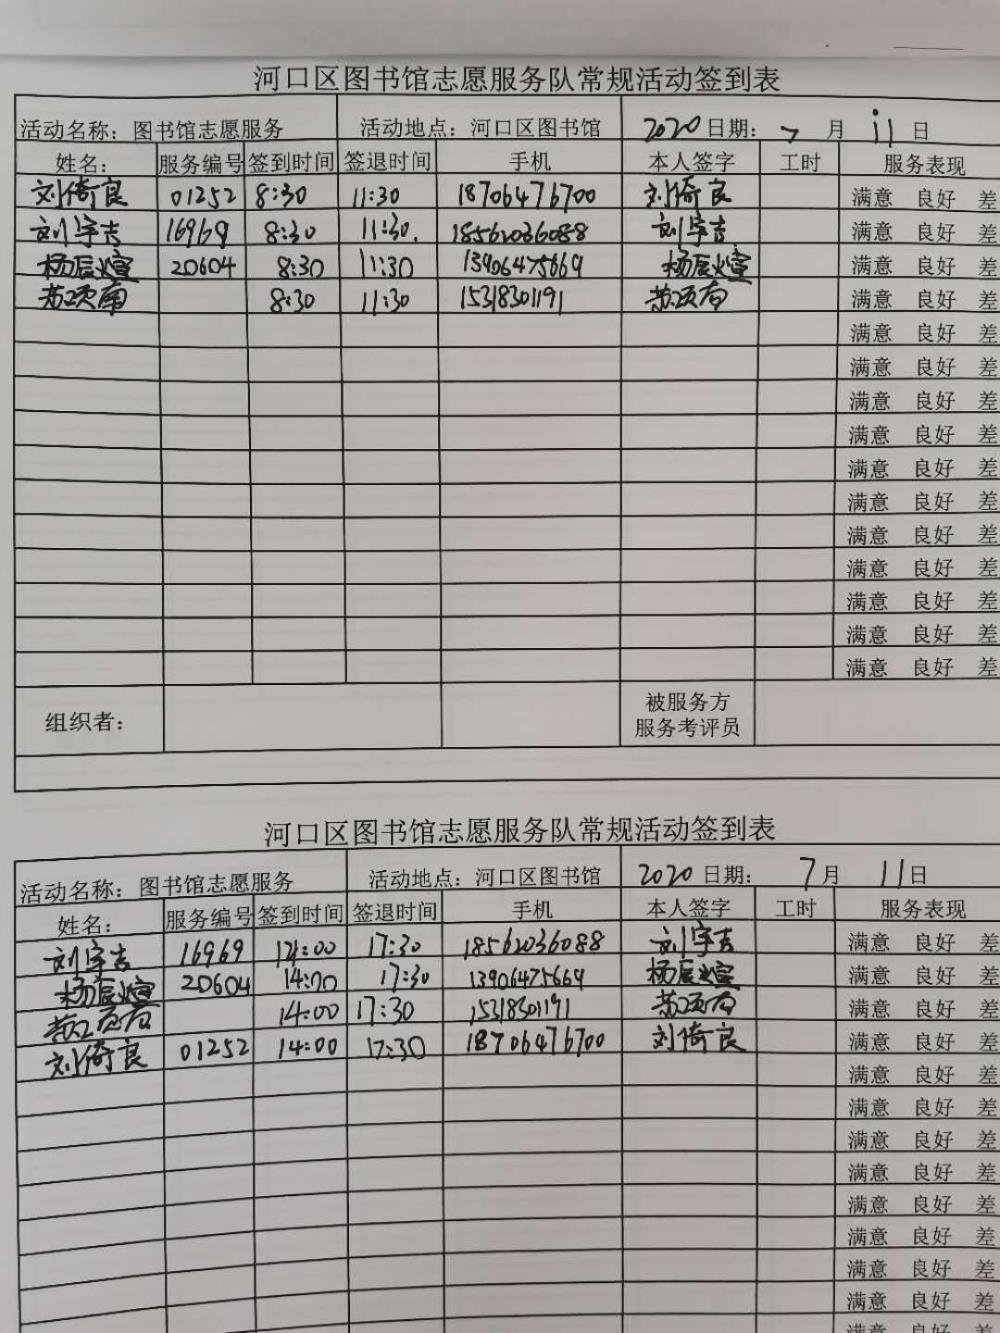 河口区图书馆志愿服务队常规活动签到表
活动名称：图书馆志愿服务 活动地点：河口区图书馆 2020日期： 7 月 11 日
姓名： 服务编号 签到时间 签退时间 手机 本人签字 工时 服务表现
刘倚良 01252 8:30 11:30 18706476700 刘倚良 满意 良好 差
刘宇吉 16969 8:30 11:30. 18562036088 刘宇吉 满意 良好 差
杨辰煊 20604 8:30 11:30 13906475669 杨辰煊 满意 良好 差
8:30 11:30 15318301191 满意 良好 差
满意 良好 差
满意 良好 差
满意 良好 差
满意 良好 差
满意 良好 差
满意 良好 差
满意 良好 差
满意 良好 差
满意 良好 差
满意 良好 差
满意 良好 差
组织者： 被服务方
服务考评员
河口区图书馆志愿服务队常规活动签到表
活动名称：图书馆志愿服务 活动地点：河口区图书馆 2020日期： 7月 11日
姓名： 服务编号 签到时间 签退时间 手机 本人签字 工时 服务表现
刘宇吉 16969 14:00 17:30 18562036088 刘宇吉 满意 良好 差
杨辰煊 20604 14:00 17:30 13906475669 杨辰煊 满意 良好 差
14:00 17:30 15318301191 满意 良好 差
刘倚良 01252 14:00 17:30 18706476700 刘倚良 满意 良好 差
满意 良好 差
满意 良好 差
满意 良好 差
满意 良好 差
满意 良好 差
满意 良好 差
满意 良好 差
满意 良好 差
满意 良好 差